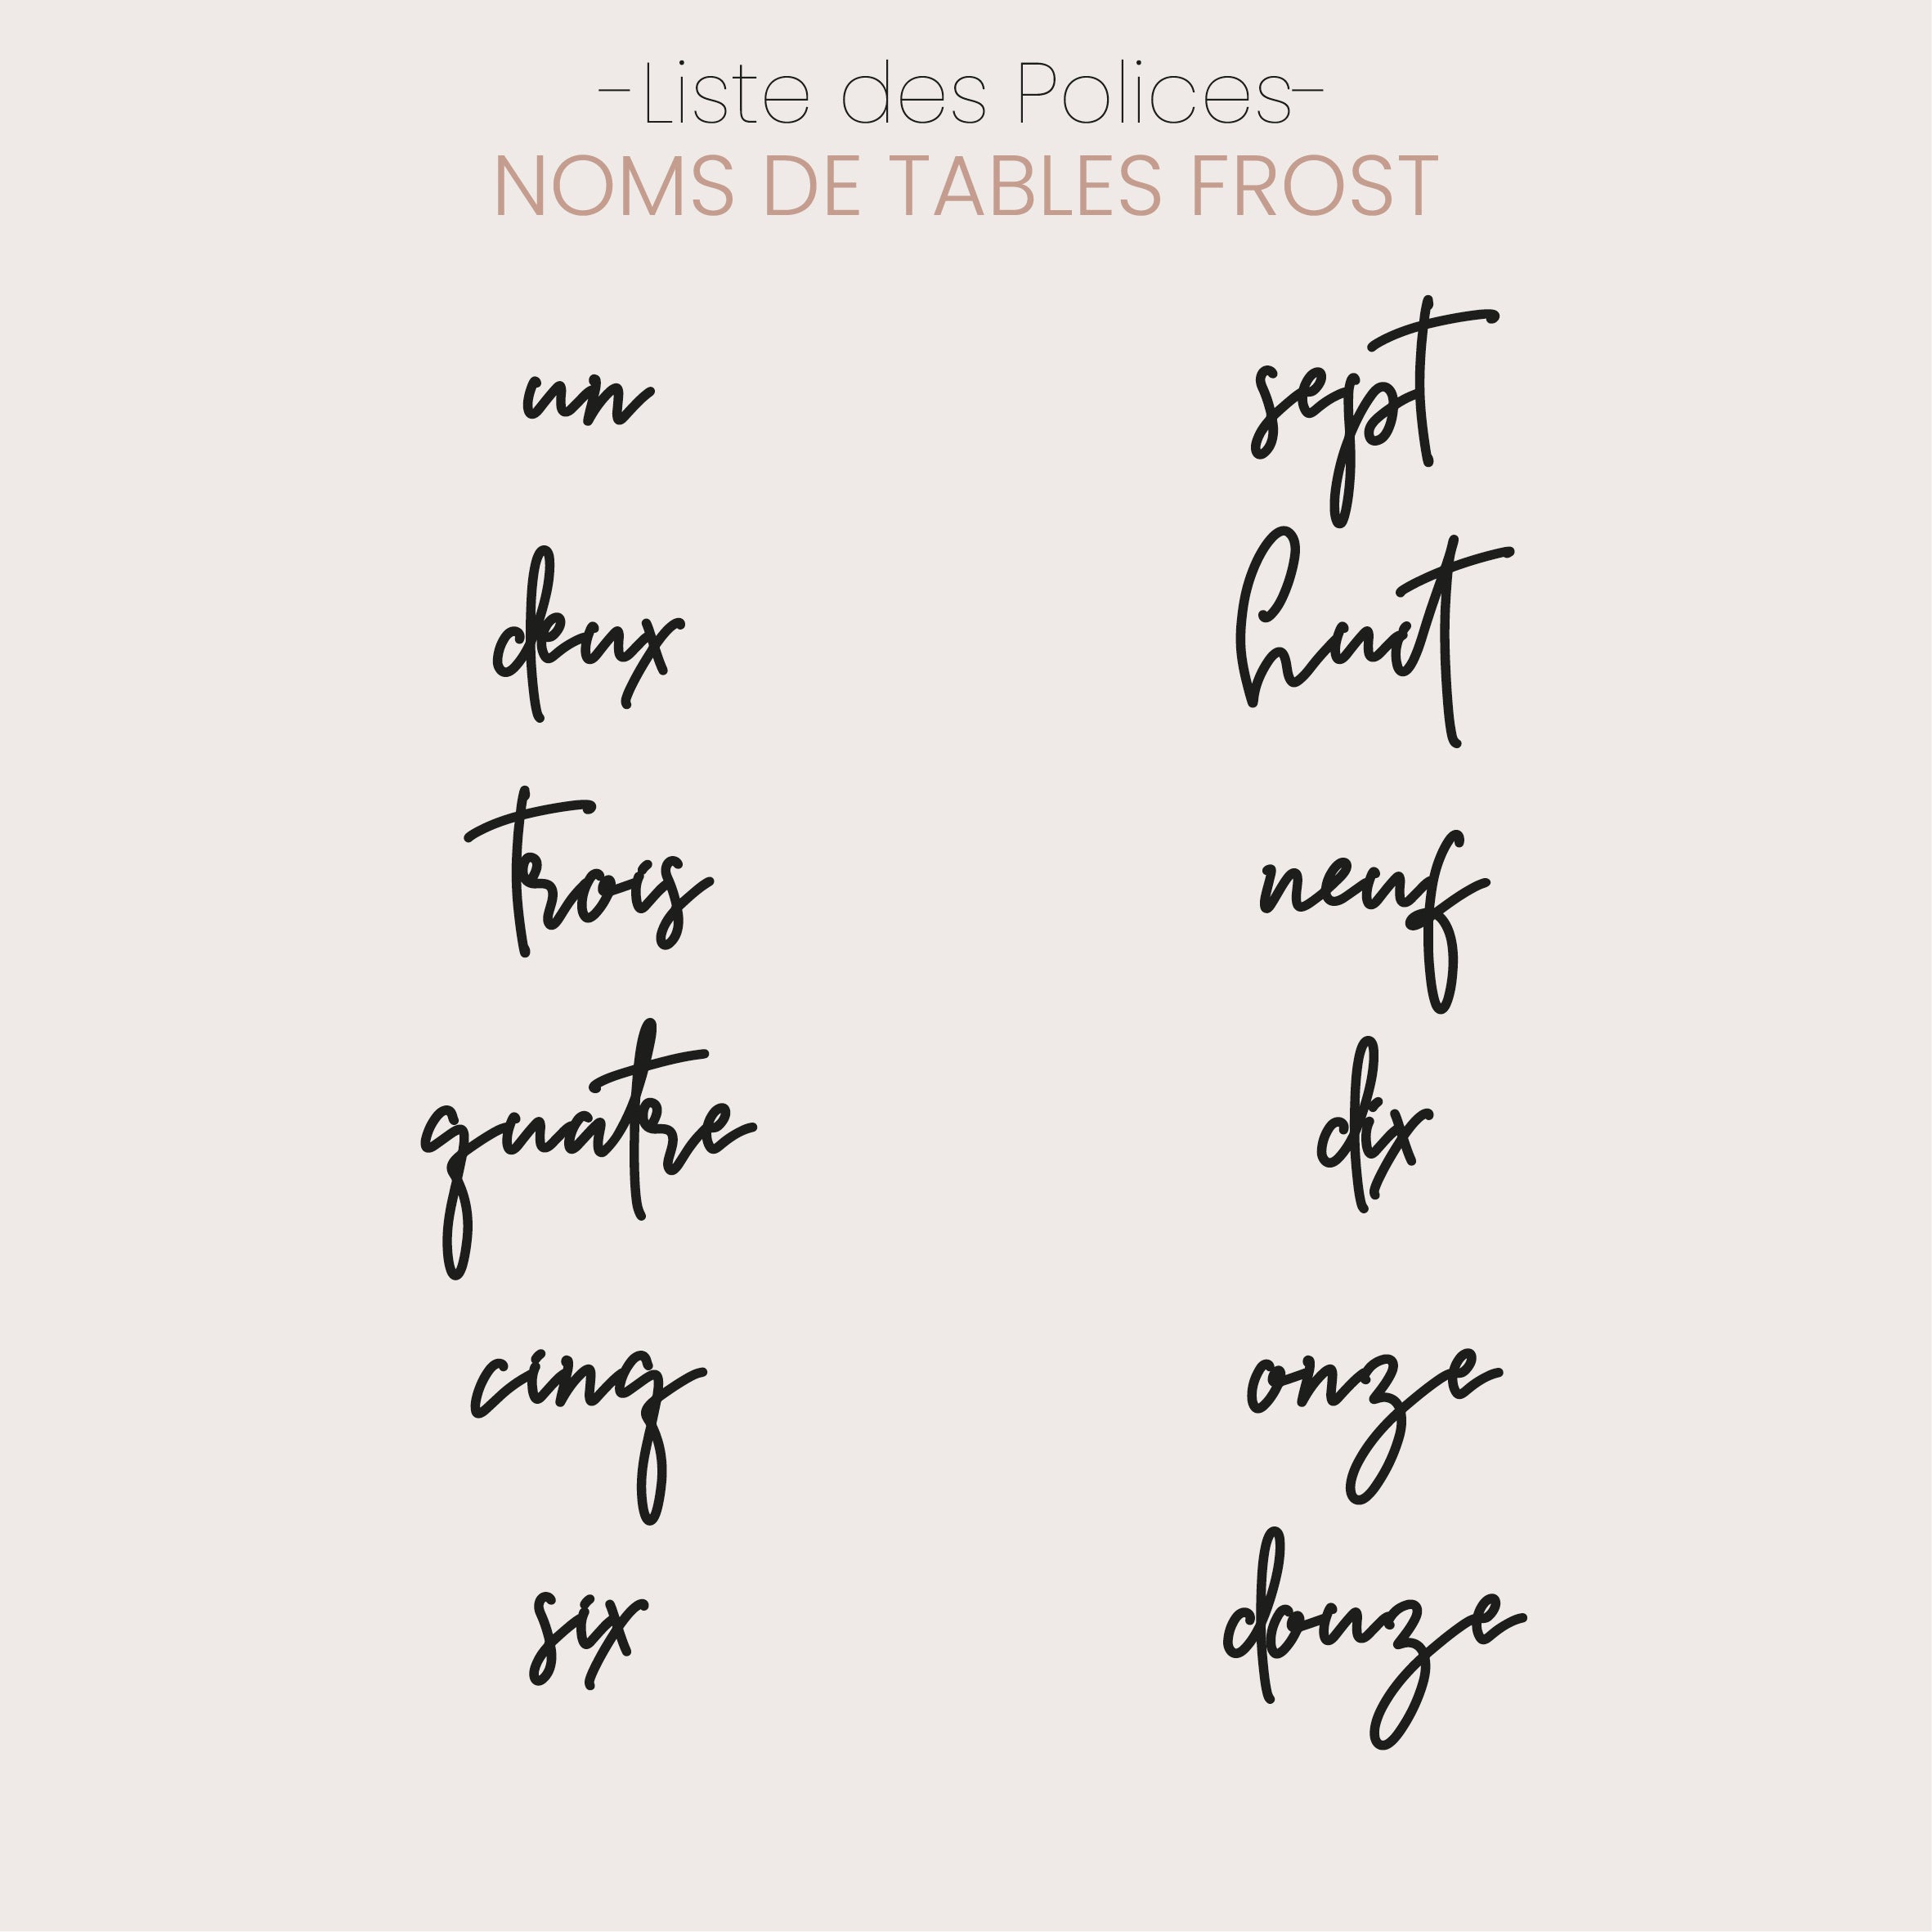 -Liste des Polices-
NOMS DE TABLES FROST
un
deux
trois
quatre
cinq
six
sept
huit
neuf
dix
onze
douze